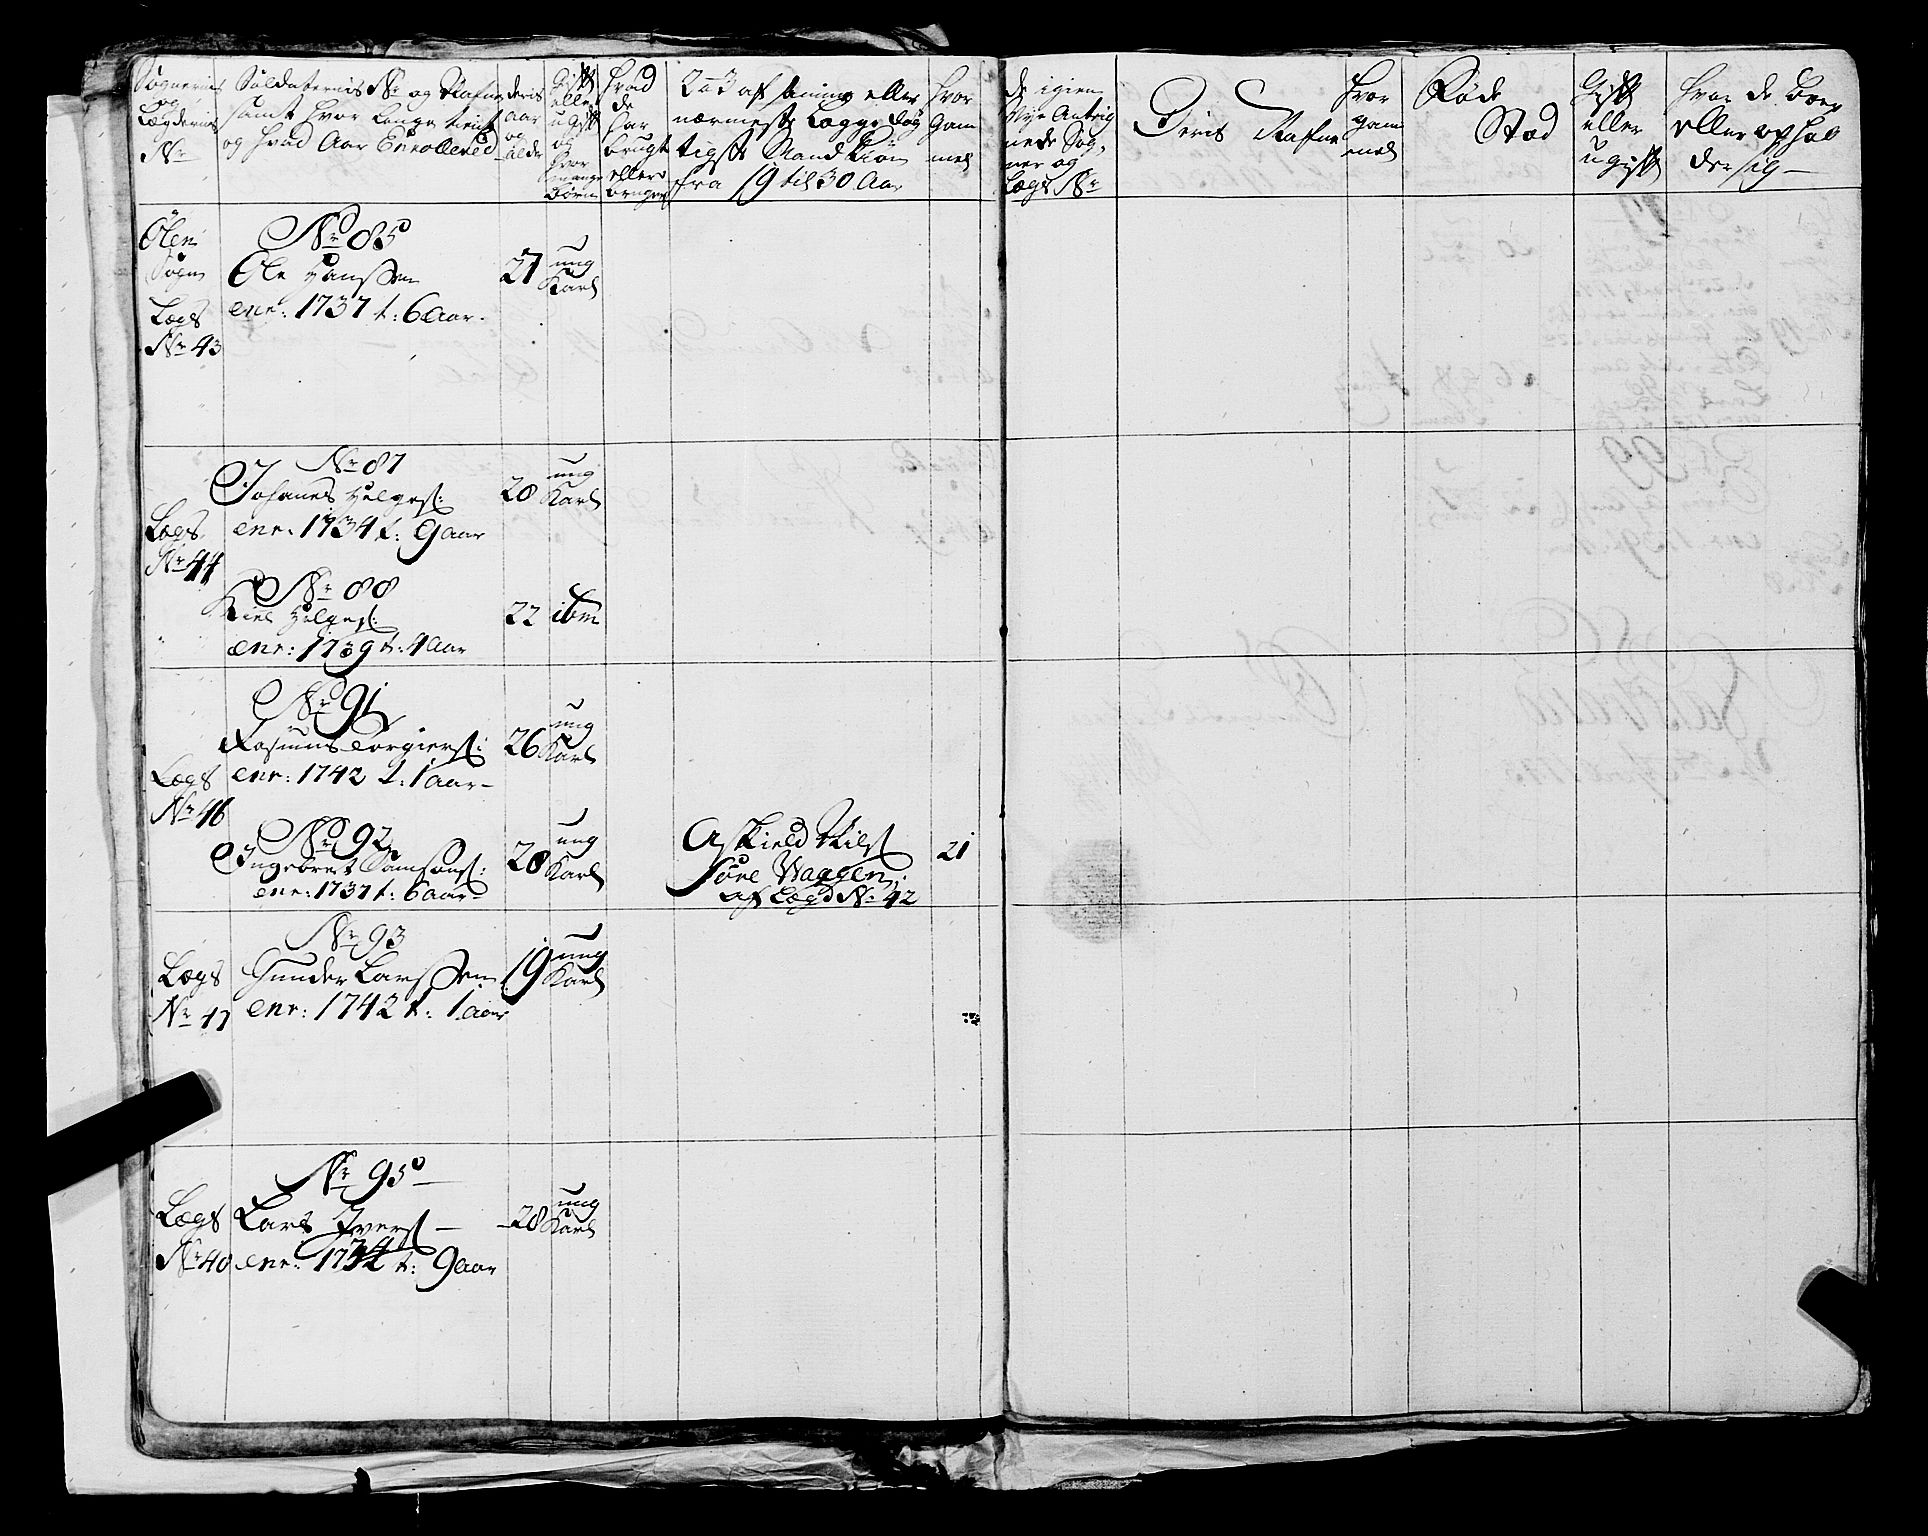 Sognernis
og
Lægdernis
No
Soldaternis No og Nafne
samt hvor længe tient
og hvad Aar Enrolleret
deris
aar
og
alder
Gift
eller
ugift
og
hvor
mange
Børn
hvad
de
har
brugt
eller
bruger
af
eller
nærmeste Lægge
tigste Mandkiøn
fra 19 til 30 Aar
hvor
gam
mel
de igien
Nye Anteg
nede Sog,
ner og
Lægs No
Deris Nafne
hvor
gam
mel
Føde
Stæd
Gift
eller
ugift
hvor de boer
eller ophol
der sig
Ølen
Sogn
Lægs
No 43
No 85
Ole Hanssen
enr: 1737 t: 6 aar
27
ung
Karl
Lægs
No 44
No 87
Johanes Helges:
enr. 1734 t: 9 aar
28
ung
Karl
No 88
Kiel Helges:
enr: 1739 t: 4 aar
22
ibm
Lægs
No 46
No 91
Rasmus Torgiers:
enr: 1742 t: 1 aar
26
ung
Karl
No 92
Ingebret Samsons:
enr: 1737 t: 6 aar
28
ung
Karl
Askield Nils
føre Waagen
af Lægd No 42
21
Lægs
No 47
No 93
Gunder Larssen
enr: 1742 t: 1 aar
19
ung
Karl
Lægs
No 48
No 95
Lars Ivers
enr: 1734 t: 9 aar
28
ung
Karl